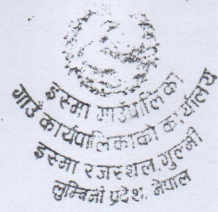 इस्मा गाउँपालिका
गाउँ कार्यपालिकाको कार्यालय
इस्मा रजस्थल, गुल्मी
लुम्बिनी प्रदेश, नेपाल